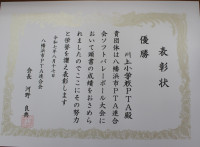 表彰状
優勝
川上小学校PTA殿
貴団体は八幡浜市PTA連合
会ソフトバレーボール大会に
おいて頭書の成績をおさめら
れましたのでここにその努力
と栄誉を讃え表彰します
令和七年八月十七日
八幡浜市PTA連合会
会長 河野良典